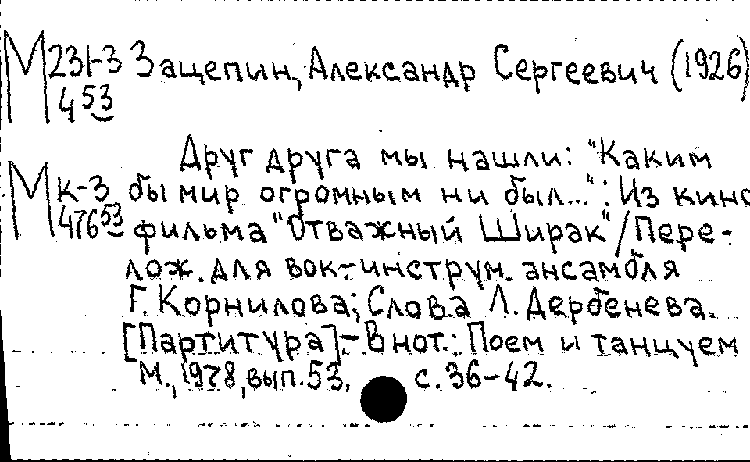 М 231-3 Зацепин, Александр Сергеевич (1926)
4 53
Друг друга мы нашли: "Каким
М к-3 бы мир огромным ни был...": Из кино
476 53 фильма "Отважный Ширак"/Пере-
лож. для вок-инструм. ансамбля
Г. Корнилова; Слова Л. Дербенева.
[Партитура].- В нот.: Поем и танцуем
М., 1978, вып. 53. с. 36-42.